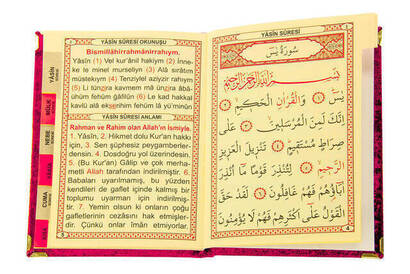 YÂSÎN SÛRESİ OKUNUŞU
Bismillâhirrahmânirrahıym.
Yâsîn (1) Vel kur'ânil hakiym (2) İnne-
ke le minel murseliyn (3) Alâ sırâtım
müstekıym (4) Tenziylel aziyzir rahıym
(5) Li tünzira kavmem mâ ünzira âbâ-
ühüm fehüm gâfilûn (6) Le kad hakkal
kavlü alâ ekserihim fehüm lâ yü'minûn
YÂSÎN SÛRESİ ANLAMI
Rahman ve Rahim olan Allah'ın ismiyle.
1. Yâsîn. 2. Hikmet dolu Kur'an hakkı
için, 3. Sen şüphesiz peygamberler-
densin. 4. Dosdoğru yol üzerindesin.
5. (Bu Kur'an) Gâlip ve çok merha-
metli Allah tarafından indirilmiştir. 6.
Babaları uyarılmamış, bu yüzden
kendileri de gaflet içinde kalmış bir
toplumu uyarman için indirilmiş-
tir. 7. Yemin olsun ki onların çoğu
gafletlerinin cezâsını hak etmişler-
dir. Çünkü onlar îman etmiyorlar.
YÂSÎN
MÜLK
NEBE
CUMA
YÂSÎN SÛRESİ
سُورَةُ يٰسٓ
بِسْمِ اللّٰهِ الرَّحْمٰنِ الرَّحِيمِ
يٰسٓ ﴿١﴾ وَالْقُرْاٰنِ الْحَكِيمِ ﴿٢﴾
اِنَّكَ لَمِنَ الْمُرْسَلِينَ ﴿٣﴾ عَلٰى
صِرَاطٍ مُسْتَقِيمٍ ﴿٤﴾ تَنْزِيلَ الْعَزِيزِ
الرَّحِيمِ ﴿٥﴾ لِتُنْذِرَ قَوْمًا مَٓا اُنْذِرَ
اٰبَٓاؤُ۬هُمْ فَهُمْ غَافِلُونَ ﴿٦﴾ لَقَدْ حَقَّ
الْقَوْلُ عَلٰٓى اَكْثَرِهِمْ فَهُمْ لَا يُؤْمِنُونَ